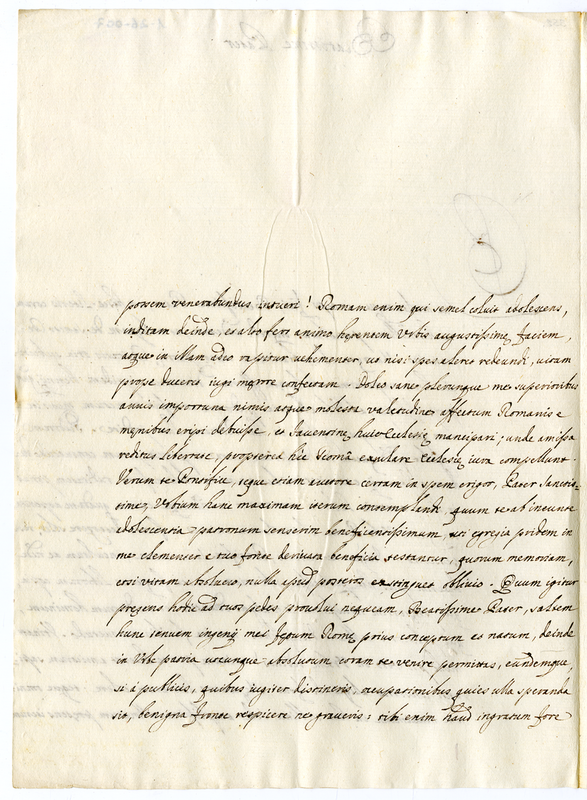 possem venerabundus intueri! Romam enim qui semel coluit adolescens,
inditam deinde, et alto fert animo herentem Urbis augustissimę faciem,
atque in illam adeo rapitur vehementer, ut nisi spes aleret redeundi, vitam
propse duceret iugi męrore confectam. Doleo sane plerunque me superioribus
annis importuna nimis atque molesta valetudine affectum Romanis e
męnibus eripi debuisse, et Faventinę huic Ecclesię mancipari; unde amissa
reditus libertate, propterea hic Romā exulare Ecclesię iura compellunt.
Verum te Pontifice, teque etiam auctore certam in spem erigor, Pater Sanctis-
sime, Urbium hanc maximam iterum contemplandi, quum te ab ineunte
adolescentia patronum senserim beneficentissimum, uti egregia pridem in
me clementer e tuo fonte derivata beneficia testantur, quorum memoriam,
etsi vitam absolvero, nulla apud posteros extinguet oblivio. Quum igitur
pręsens hodie ad tuos pedes provolvi nequeam, Beatissime Pater, saltem
hunc tenuem ingenij mei fętum Romę prius conceptum et natum, deinde
in Urbe patria utcunque absolutum coram te venire permittas, eundemque,
si à publicis, quibus iugiter distineris, occupationibus quies ulla speranda
sit, benigna fronte respicere ne graveris: tibi enim haud ingratum fore